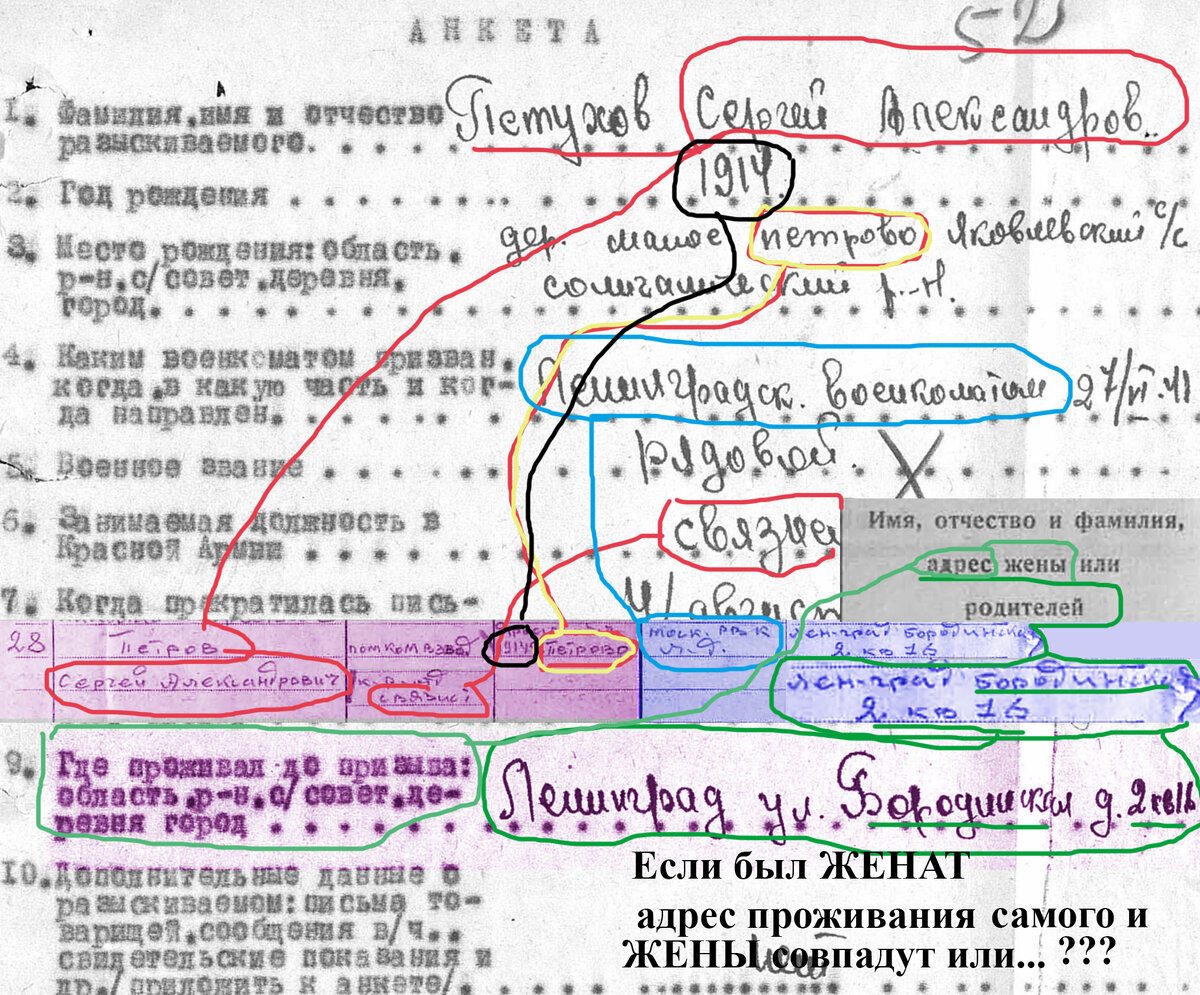 АНКЕТА
1. Фамилия, имя и отчество Петухов Сергей Александров..
разыскиваемого.
1914
2. Год рождения
3. Место рождения: область, дер. малое петрово Яковлевский с/с
р-н, с/совет, деревня, солигаличский р-н.
город.
4. Каким военкоматом призван, Ленинградск. военкоматом 27/VI-41
когда, в какую часть и ког-
да направлен.
5. Военное звание рядовой.
6. Занимаемая должность в
Красной Армии
Имя, отчество и фамилия,
адрес жены или
родителей
7. Когда прекратилась пись- август
28 Петров помкомвзвод 1914 Петрово моск. РВК Лен-град Бородинская
Сергей Александрович связист Л.О. 2. кв 16
Лен-град Бородинская
2. кв 16
9. Где проживал до призыва: Ленинград ул. Бородинская д. 2 кв 16
область, р-н, с/совет, де-
ревня город
10. Дополнительные данные о
разыскиваемом: письма то-
варищей, сообщения в/ч.,
свидетельские показания и
др./приложить к анкете/
Если был ЖЕНАТ
адрес проживания самого и
ЖЕНЫ совпадут или... ???